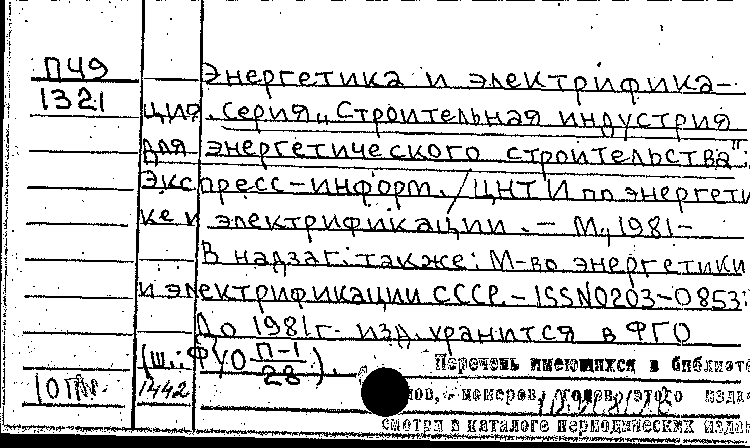 П49
1321
Энергетика и электрифика-
ция. Серия „Строительная индустрия
для энергетического строительства":
Экспресс-информ. / ЦНТИ по энергети
ке и электрификации. – М., 1981-
В надзаг. также: М-во энергетики
и электрификации СССР. – ISSN0203-0853
До 1981г. изд. хранится в ФГО
(Ш.: ФУО П-1
28 ).
1442
Перечень имеющихся в библиоте
ов, номеров, годов этого изда
смотри в каталоге периодических изда